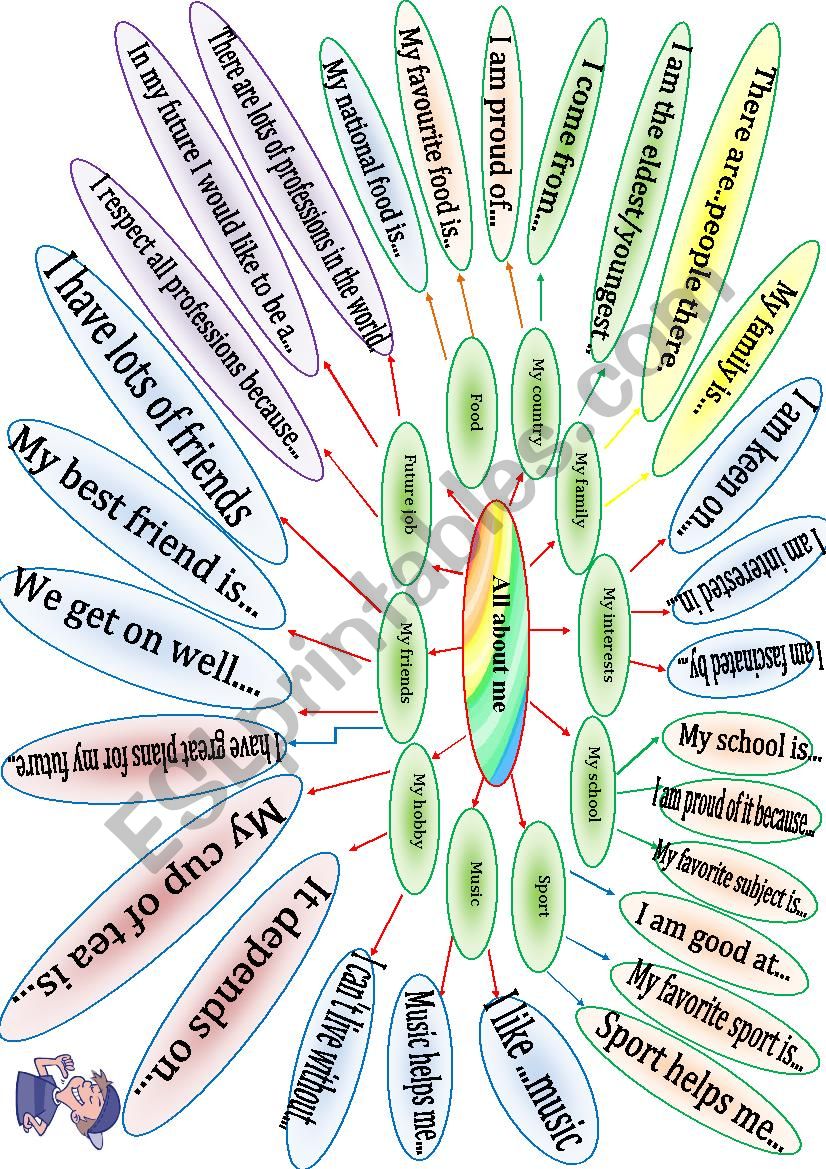 All about me
My country
I come from...
I am proud of...
My family
I am the eldest/youngest ..
There are..people there.
My family is...
My interests
I am keen on...
I am interested in...
I am fascinated by...
My school
My school is...
I am proud of it because...
My favorite subject is...
Sport
I am good at...
My favorite sport is...
Sport helps me...
Music
I like ...music
Music helps me...
My hobby
My cup of tea is...
It depends on...
I can't live without...
My friends
I have lots of friends
My best friend is...
We get on well....
I have great plans for my future..
Future job
There are lots of professions in the world.
In my future I would like to be a...
I respect all professions because...
Food
My national food is...
My favourite food is..
ESLprintables.com